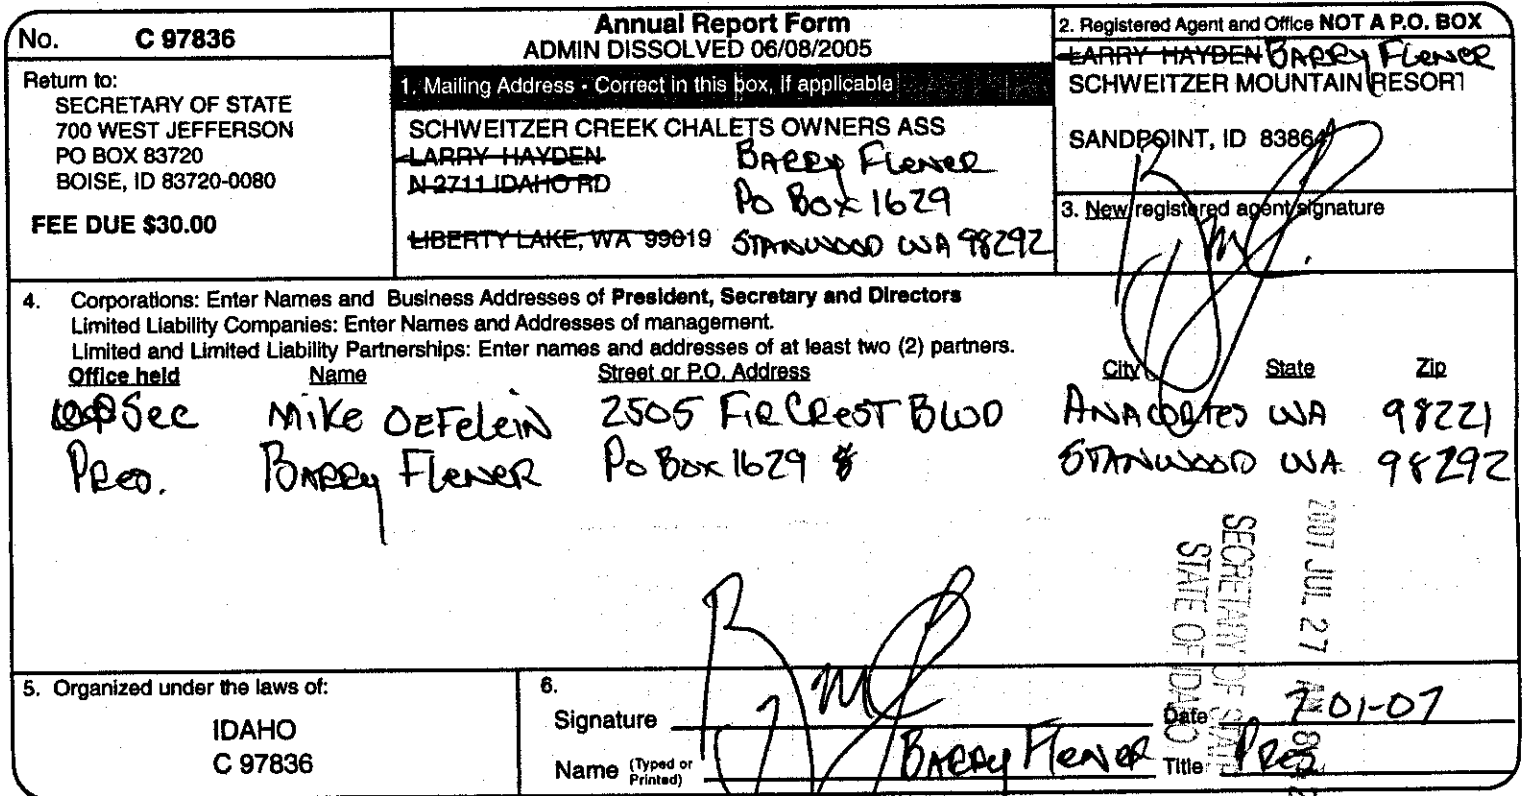 No. C 97836
Return to:
SECRETARY OF STATE
700 WEST JEFFERSON
PO BOX 83720
BOISE, ID 83720-0080
FEE DUE $30.00
Annual Report Form
ADMIN DISSOLVED 06/08/2005
1. Mailing Address - Correct in this box, if applicable
SCHWEITZER CREEK CHALETS OWNERS ASS
LARRY HAYDEN BARRY FLENER
N 2711 IDAHO RD PO BOX 1629
LIBERTY LAKE, WA 99019 STANWOOD WA 98292
2. Registered Agent and Office NOT A P.O. BOX
LARRY HAYDEN BARRY FLENER
SCHWEITZER MOUNTAIN RESORT
SANDPOINT, ID 83864
3. New registered agent signature
4. Corporations: Enter Names and Business Addresses of President, Secretary and Directors
Limited Liability Companies: Enter Names and Addresses of management.
Limited and Limited Liability Partnerships: Enter names and addresses of at least two (2) partners.
Office held Name Street or P.O. Address City State Zip
Sec Mike DeFelein 2505 FIRCREST BLVD ANACORTES WA 98221
Pres. BARRY FLENER Po Box 1629 STANWOOD WA 98292
2007 JUL 27 AM 8
SECRETARY OF STATE
STATE OF IDAHO
5. Organized under the laws of:
IDAHO
C 97836
6.
Signature Date 7-01-07
Name (Typed or Printed) BARRY FLENER Title Pres